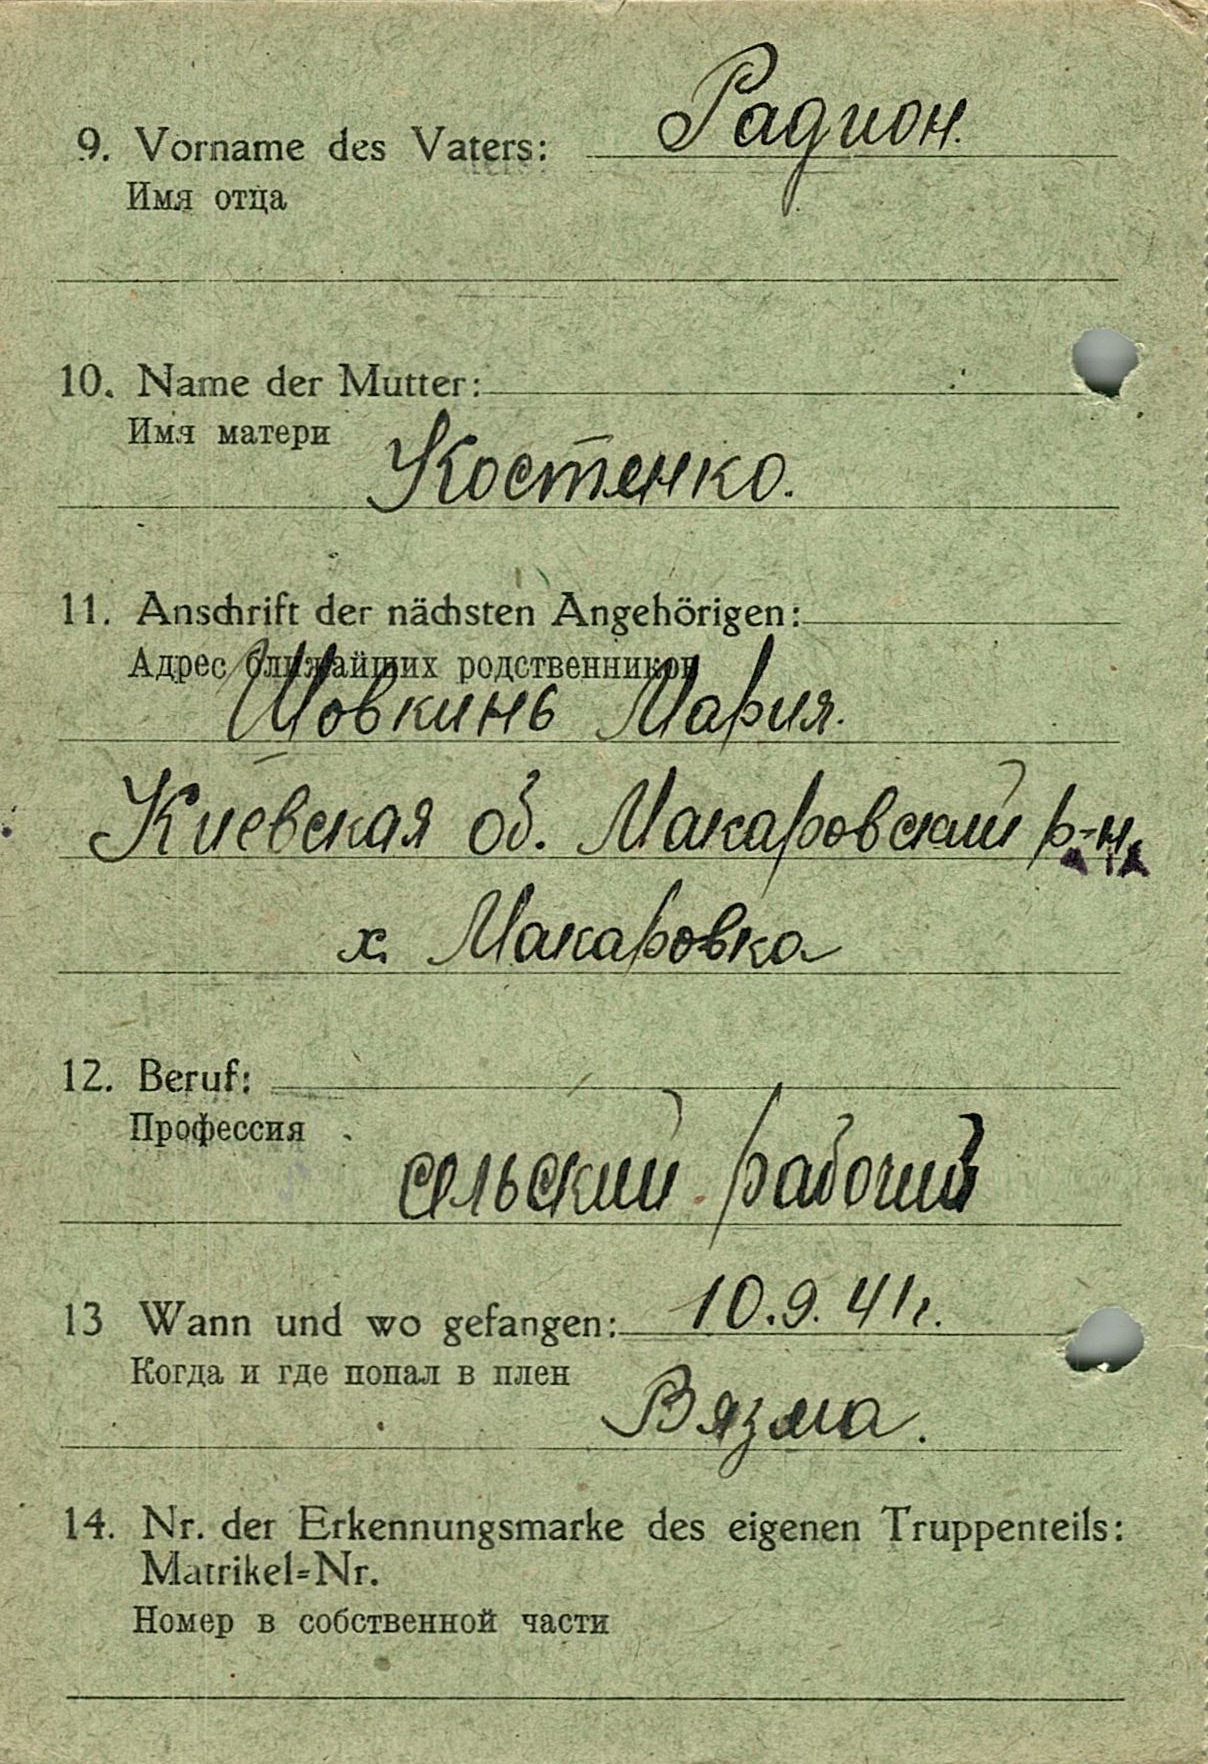 9. Vorname des Vaters: Радион.
Имя отца
10. Name der Mutter:
Имя матери
Костенко.
11. Anschrift der nächsten Angehörigen:
Адрес ближайших родственников
Шовкинь Мария.
Киевская об. Макаровский р-н.
х. Макаровка
12. Beruf:
Профессия
сельский рабочий
13 Wann und wo gefangen: 10.9.41г.
Когда и где попал в плен
Вязма.
14. Nr. der Erkennungsmarke des eigenen Truppenteils:
Matrikel=Nr.
Номер в собственной части